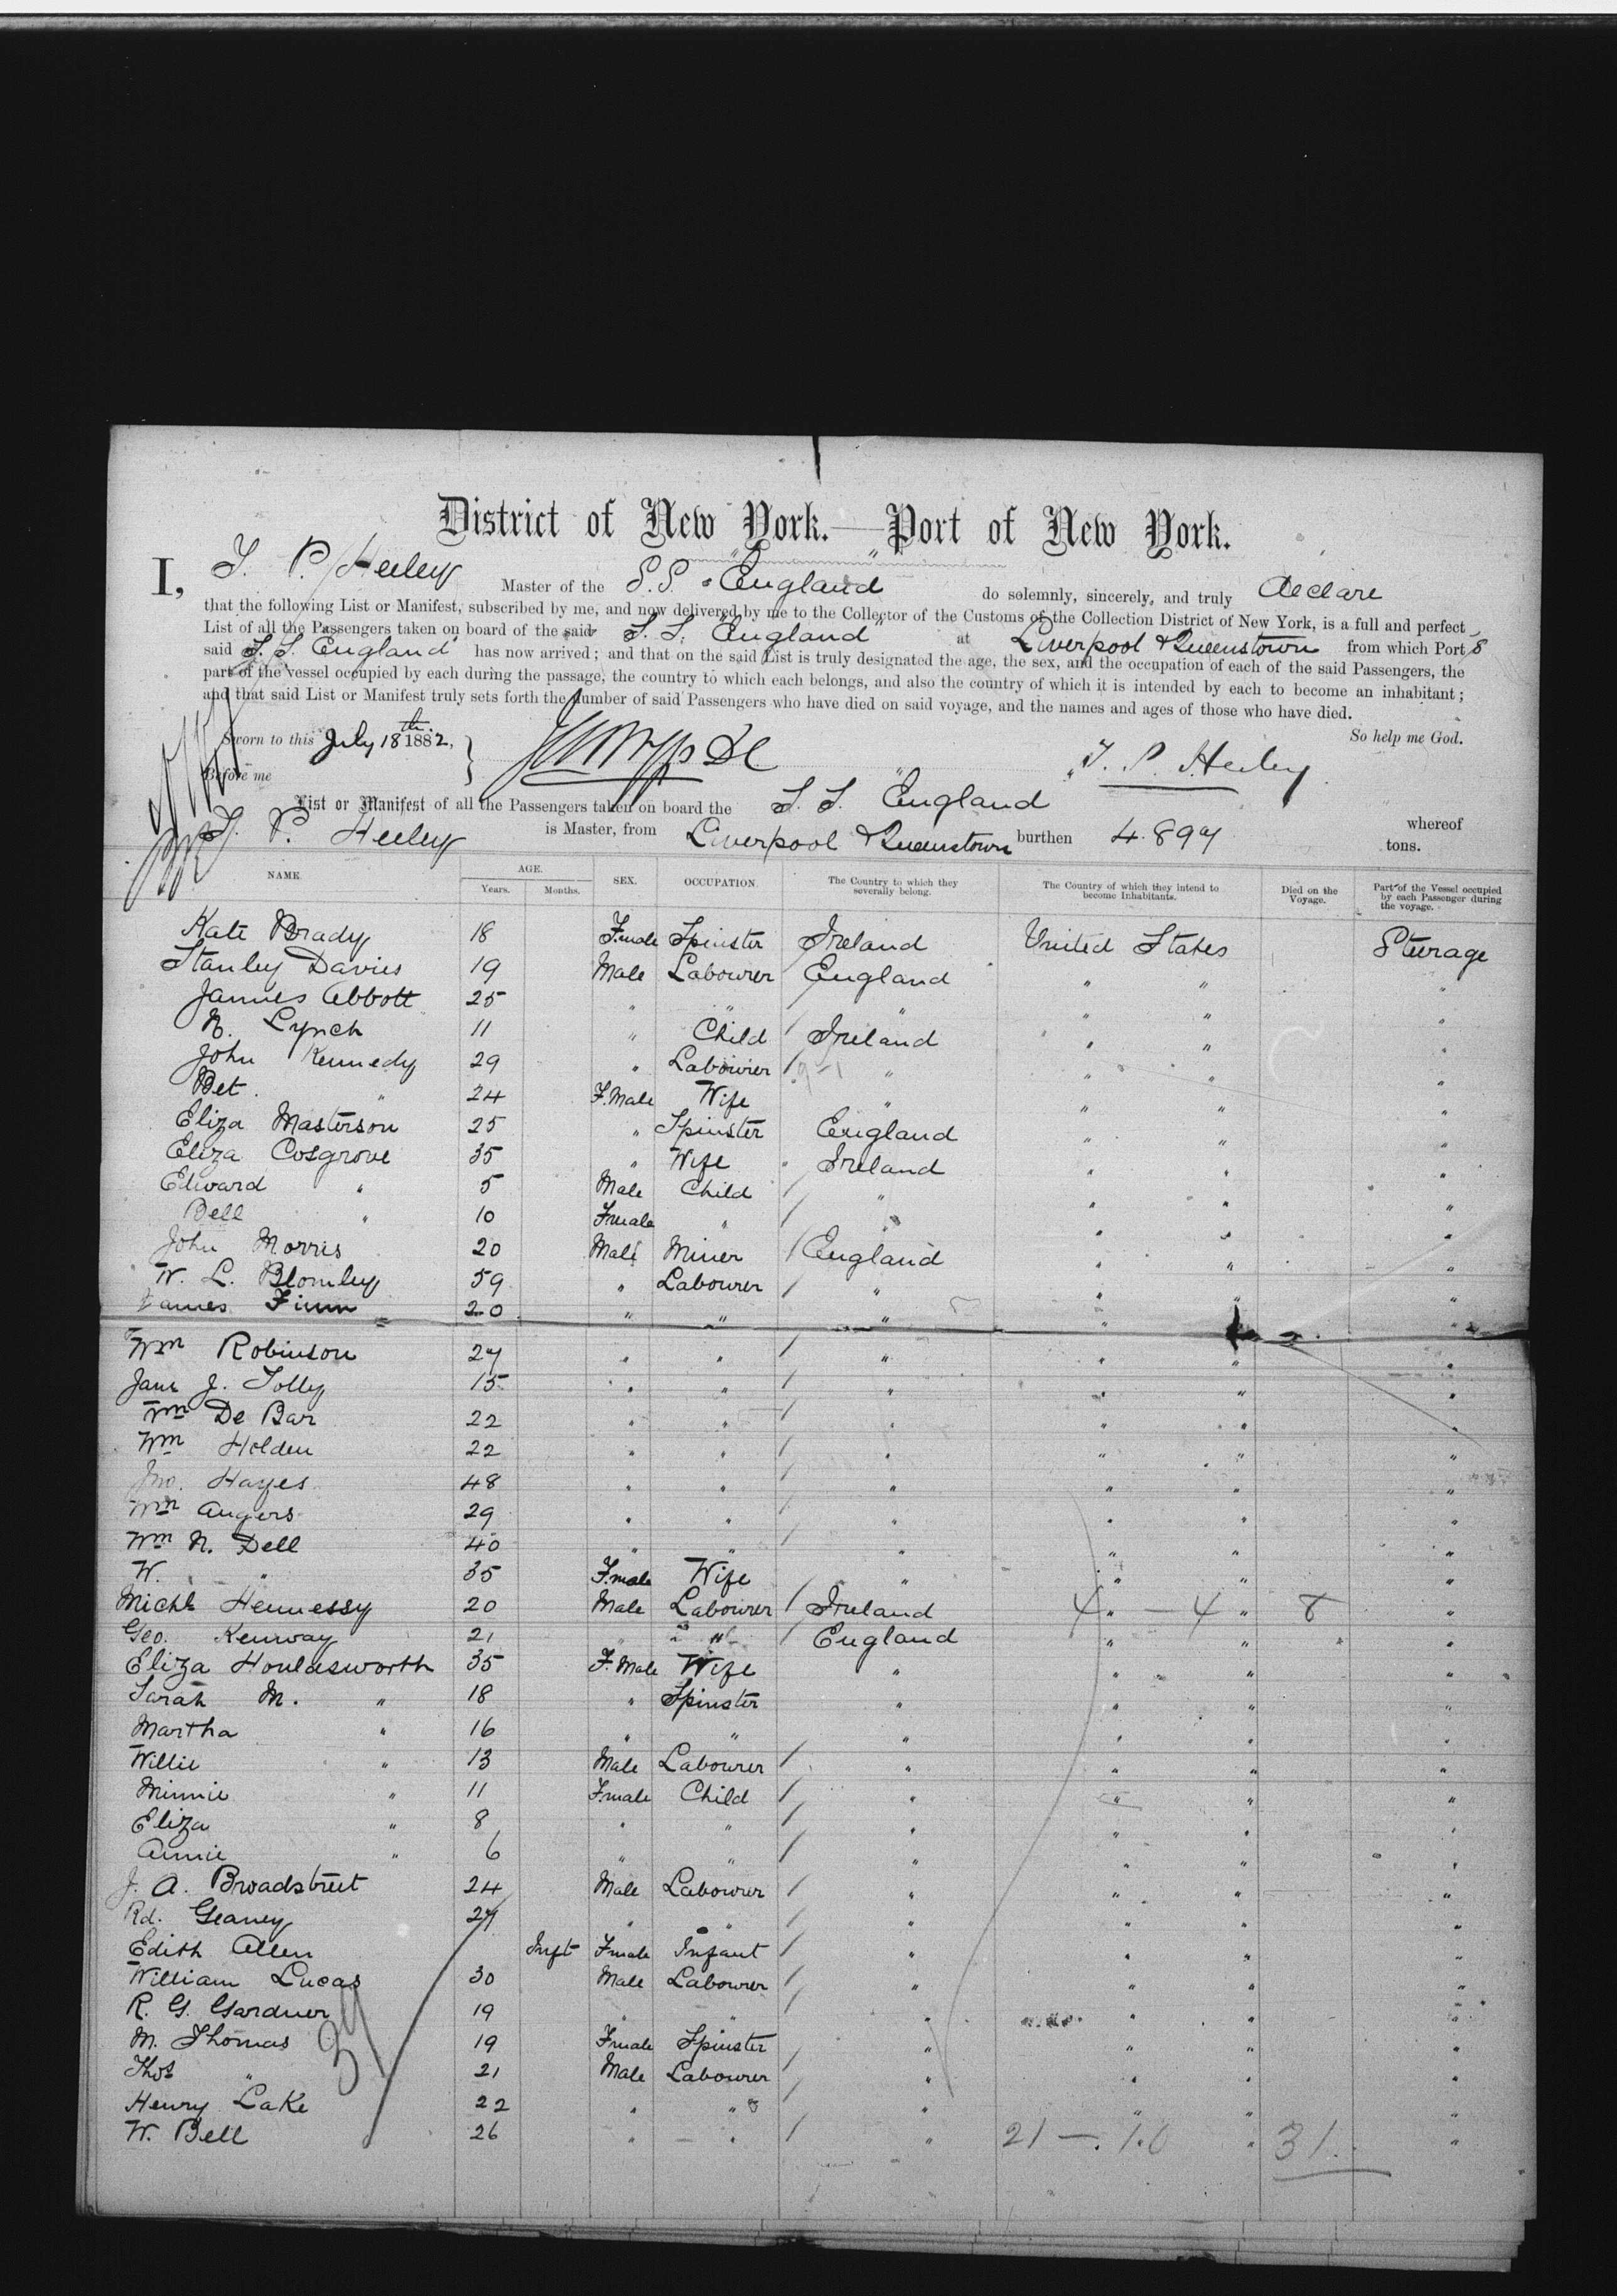 District of New York.—Port of New York.
I, T. P. Heeley Master of the S.S. "England" do solemnly, sincerely, and truly declare
that the following List or Manifest, subscribed by me, and now delivered by me to the Collector of the Customs of the Collection District of New York, is a full and perfect
List of all the Passengers taken on board of the said S. S. "England" at Liverpool & Queenstown from which Port s
said S. S. England has now arrived; and that on the said List is truly designated the age, the sex, and the occupation of each of the said Passengers, the
part of the vessel occupied by each during the passage, the country to which each belongs, and also the country of which it is intended by each to become an inhabitant;
and that said List or Manifest truly sets forth the number of said Passengers who have died on said voyage, and the names and ages of those who have died.
So help me God.
Sworn to this July 18th 1882,
T. P. Heeley
Before me
List or Manifest of all the Passengers taken on board the S. S. England whereof
T. P. Heeley is Master, from Liverpool & Queenstown burthen 4.897 tons.
NAME. AGE. Years. Months. SEX. OCCUPATION. The Country to which they severally belong. The Country of which they intend to become Inhabitants. Died on the Voyage. Part of the Vessel occupied by each Passenger during the voyage.
Kate Brady 18 Female Spinster Ireland United States Steerage
Stanley Davies 19 Male Labourer England " " "
James Abbott 25 " " " " " "
N. Lynch 11 " Child Ireland " " "
John Kennedy 29 " Labourer " " " "
Bet. " 24 F.male Wife " " " "
Eliza Masterson 25 " Spinster England " " "
Eliza Cosgrove 35 " Wife Ireland " " "
Edward " 5 Male Child " " " "
Bell " 10 Female " " " " "
John Morris 20 Male Miner England " " "
W. L. Blomley 59 " Labourer " " " "
James Finn 20 " " " " " "
Wm Robinson 27 " " " " " "
Jane J. Tolley 15 " " " " " "
Wm De Bar 22 " " " " " "
Wm Holden 22 " " " " " "
Jno. Hayes 48 " " " " " "
Wm Angers 29 " " " " " "
Wm N. Dell 40 " " " " " "
W. " 35 F.male Wife " " " "
Michl Hennessy 20 Male Labourer Ireland 4 " — 4 " 8 "
Geo. Kenway 21 " " England " " "
Eliza Houldsworth 35 F.Male Wife " " " "
Sarah M. " 18 " Spinster " " " "
Martha " 16 " " " " " "
Willie " 13 Male Labourer " " " "
Minnie " 11 Female Child " " " "
Eliza " 8 " " " " " "
Annie " 6 " " " " " "
J. A. Broadstreet 24 Male Labourer " " " "
Rd. Geaney 27 " " " " " "
Edith Allen Inft Female Infant " " " "
William Lucas 30 Male Labourer " " " "
R. G. Gardner 19 " " " " " "
M. Thomas 19 Female Spinster " " " "
Thos " 21 Male Labourer " " " "
Henry Lake 22 " " " " " "
W. Bell 26 " " " 21 — 10 " 31 "